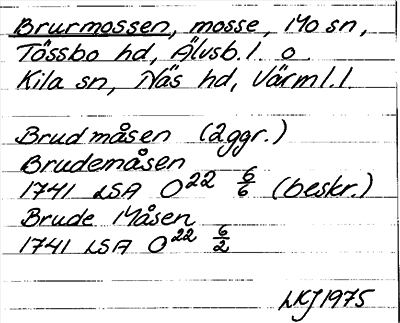 Brurmossen, mosse, Mo sn,
Tössbo hd, Älvsb. l. o
Kila sn, Näs hd, Värml. l
Brudmåsen (2ggr.)
Brudemåsen
1741 LSA O22 6/6 (beskr.)
Brude Måsen
1741 LSA O22 6/2
LKJ 1975